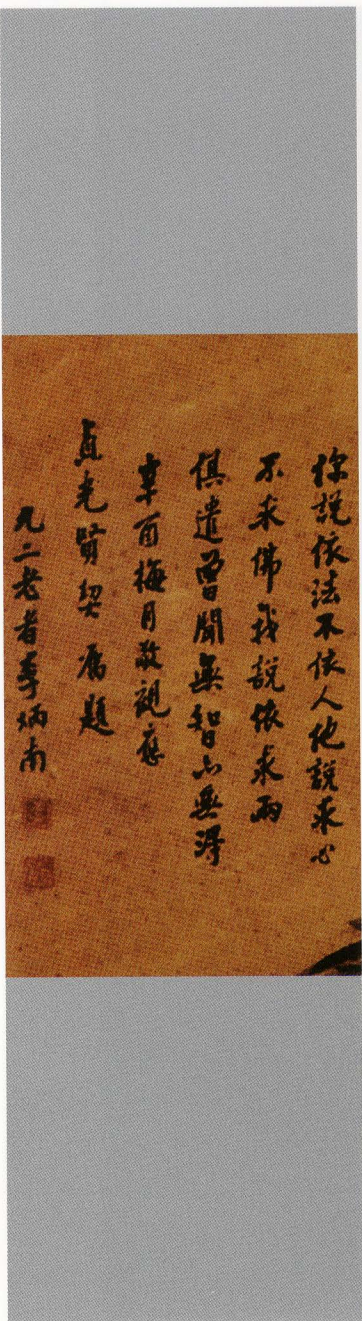 你說依法不依人他說求心
不求佛我說依求兩
俱遣曾聞無智亦無得
辛酉梅月敬觀應
貞光賢契屬題
九二老者李炳南